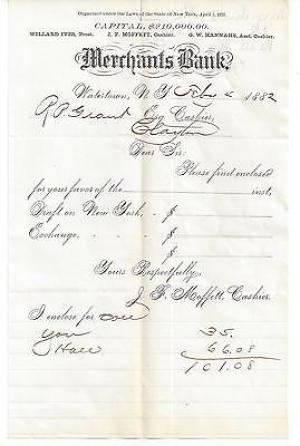 Organized under the Laws of the State of New York, April 1, 1875.
CAPITAL, $210,000.00
WILLARD IVES, Prest. J. F. MOFFETT, Cashier. G. W. HANNAHS, Asst. Cashier.
Merchants Bank.
Watertown, N. Y. 1882
R. P. Grant Esq. Cashier,
Clayton
Dear Sir:
Please find enclosed
for your favor of the inst,
Draft on New York, - $
Exchange, - - - - $
$
Yours Respectfully,
J. F. Moffett, Cashier.
I enclose for
You 35.
Hall 66.08
101.08